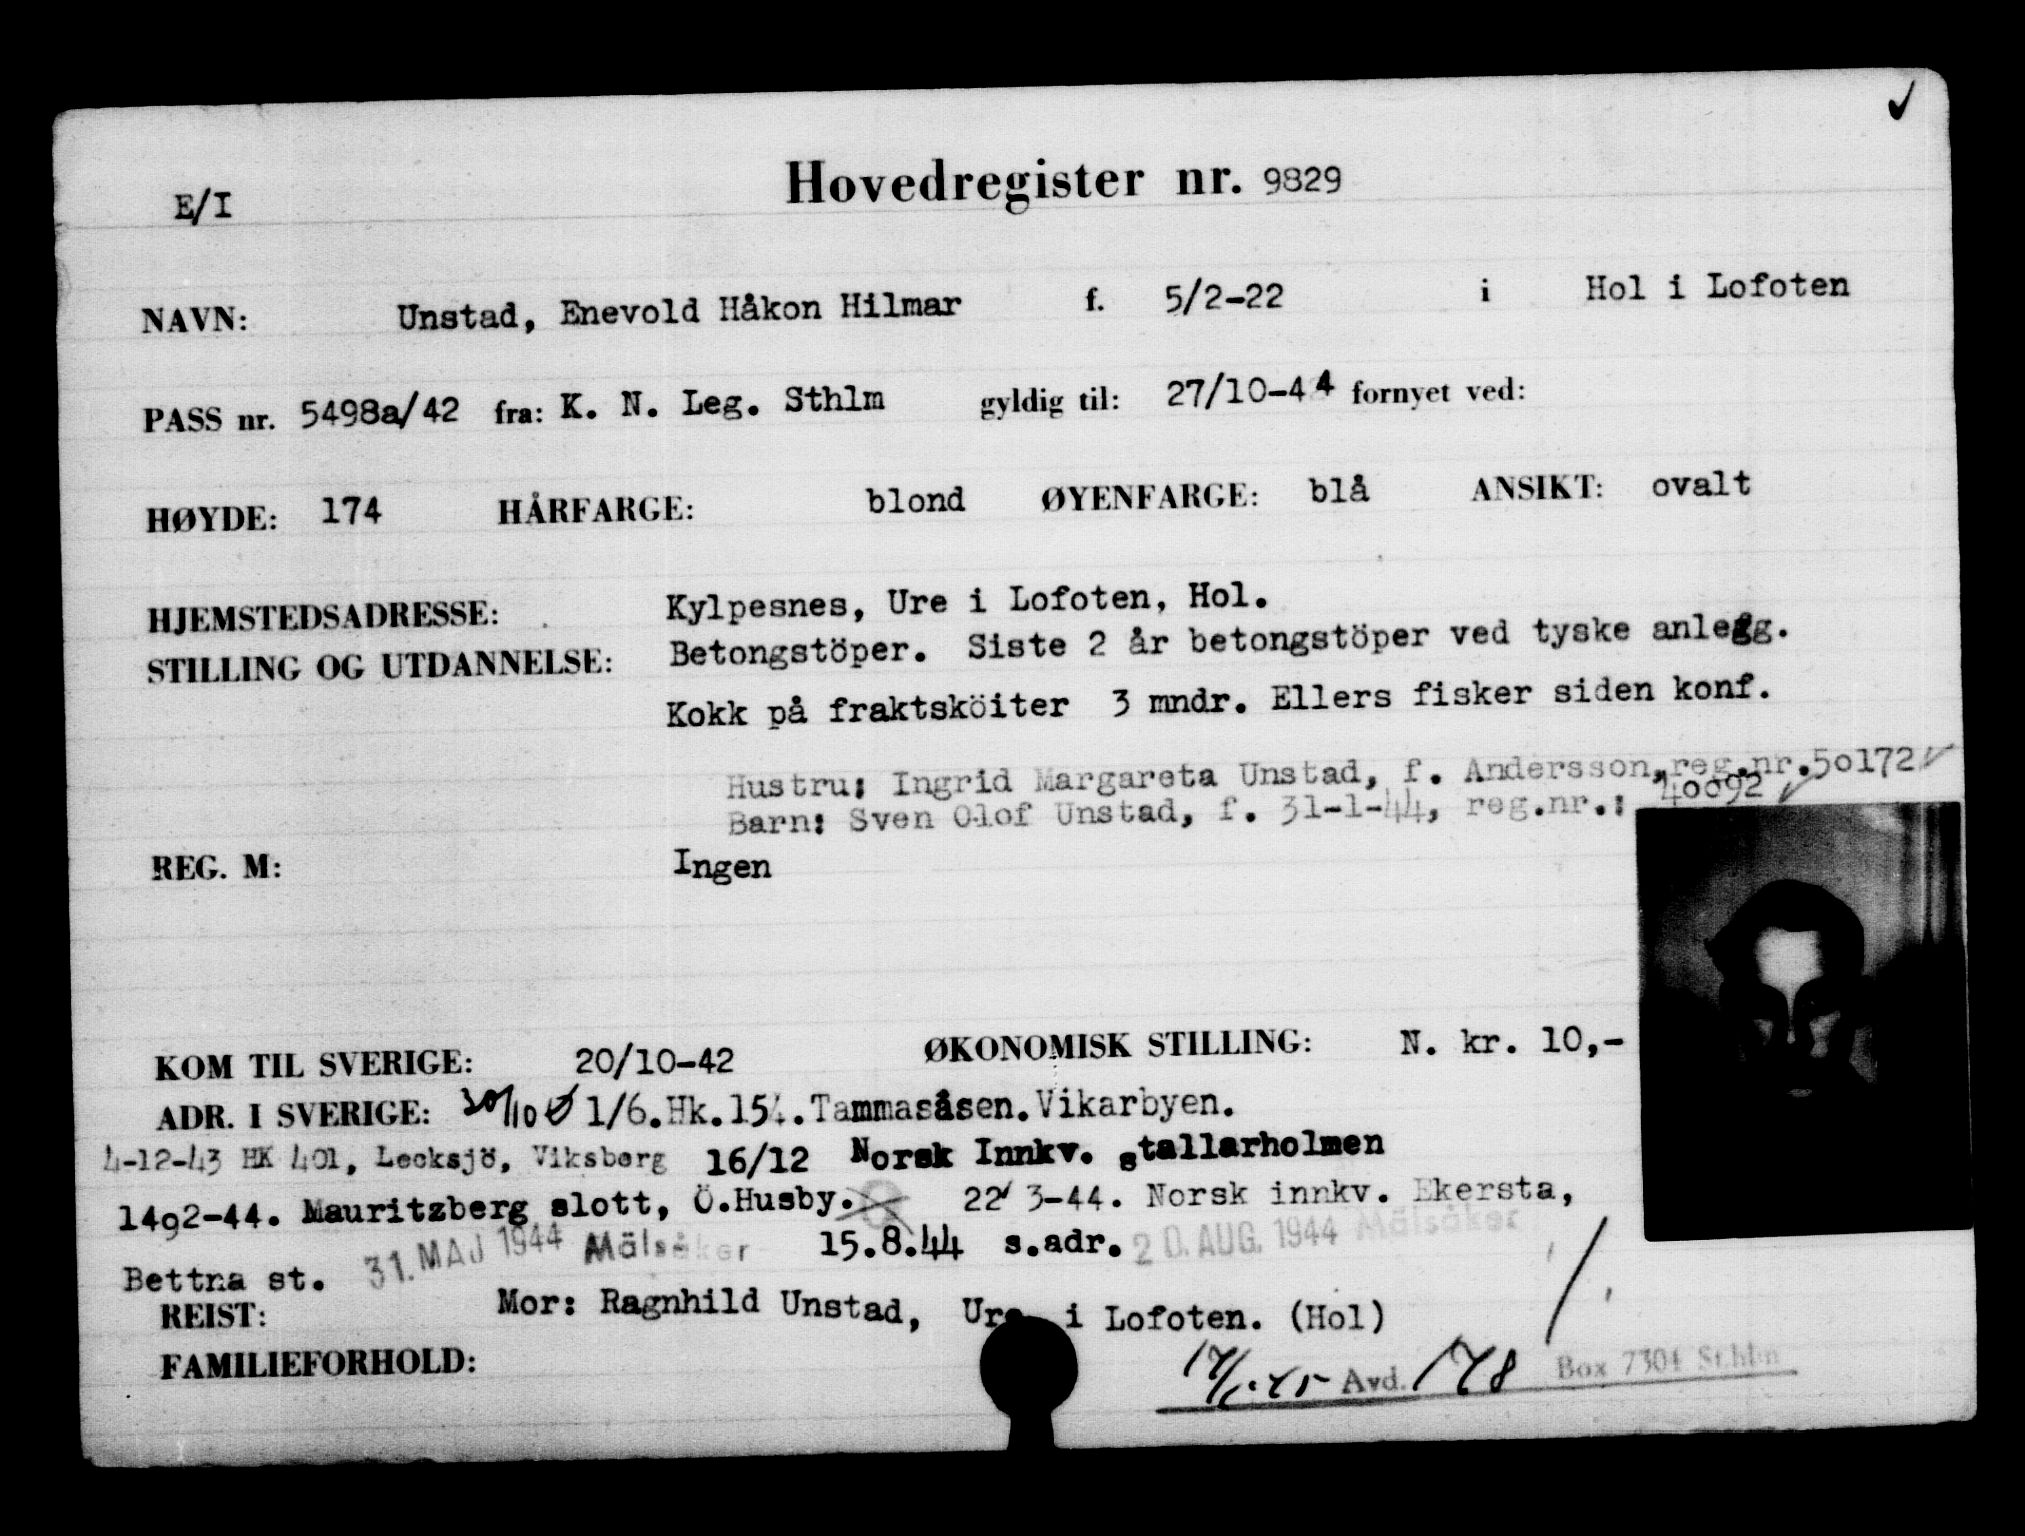 E/I
Hovedregister nr. 9829
NAVN: Unstad, Enevold Håkon Hilmar f. 5/2-22 i Hol i Lofoten
PASS nr. 5498a/42 fra: K. N. Leg. Sthlm gyldig til: 27/10-44 fornyet ved:
HØYDE: 174 HÅRFARGE: blond ØYENFARGE: blå ANSIKT: ovalt
HJEMSTEDSADRESSE: Kylpesnes, Ure i Lofoten, Hol.
STILLING OG UTDANNELSE: Betongstöper. Siste 2 år betongstöper ved tyske anlegg.
Kokk på fraktsköiter 3 mndr. Ellers fisker siden konf.
Hustru: Ingrid Margareta Unstad, f. Andersson, reg.nr.50172
Barn: Sven Olof Unstad, f. 31-1-44, reg.nr.: 40092
REG. M: Ingen
KOM TIL SVERIGE: 20/10-42 ØKONOMISK STILLING: N. kr. 10,-
ADR. I SVERIGE: 30/10 Ö 1/6.Hk.154.Tammasåsen.Vikarbyen.
4-12-43 HK 401, Lecksjö, Viksberg 16/12 Norsk Innkv. stallarholmen
1492-44. Mauritzberg slott, Ö.Husby. 22/3-44. Norsk innkv. Ekersta,
Bettna st. 31. MAJ 1944 Mälsåker 15.8.44 s.adr. 20. AUG. 1944 Mälsåker
REIST: Mor: Ragnhild Unstad, Ure i Lofoten. (Hol)
FAMILIEFORHOLD:
Avd. 178 Box 7304 Sthlm